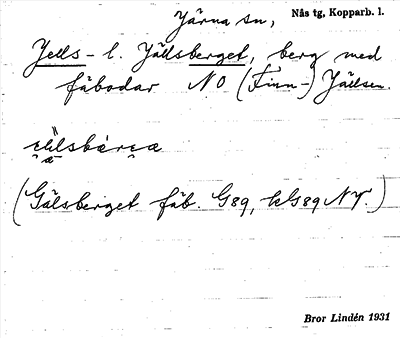 Järna sn, Nås tg, Kopparb. l.
Jells- l. Jällsberget, berg med
fäbodar NO (Finn-) Jällsen.
(Gälsberget fäb. G89, kG89 NV.)
Bror Lindén 1931